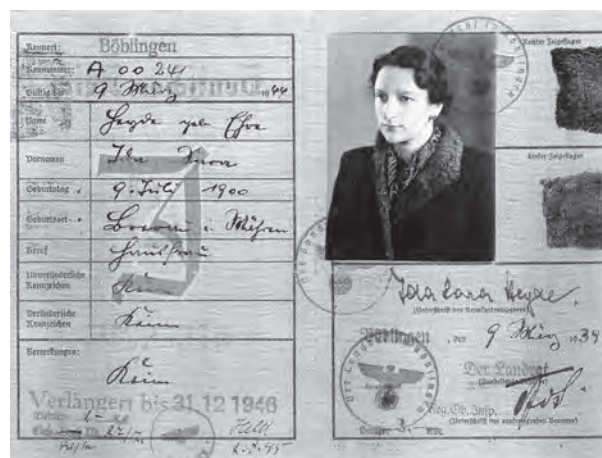 Kennort: Böblingen
Kennummer: A 00241
Gültig bis 9 März 1944
Name Heyde geb. Ehre
Vornamen Ida Sara
Geburtstag 9. Juli 1900
Geburtsort i. Mähren
Beruf Hausfrau
Unveränderliche
Kennzeichen
Veränderliche
Kennzeichen Keine
Bemerkungen:
Keine
Verlängert bis 31.12 1946
Rechter Zeigefinger
Linker Zeigefinger
Ida Sara Heyde.
(Unterschrift des Kennkarteninhabers)
Böblingen, den 9 März 1939
Der Landrat
Reg. Ob. Insp.
(Unterschrift des ausfertigenden Beamten)